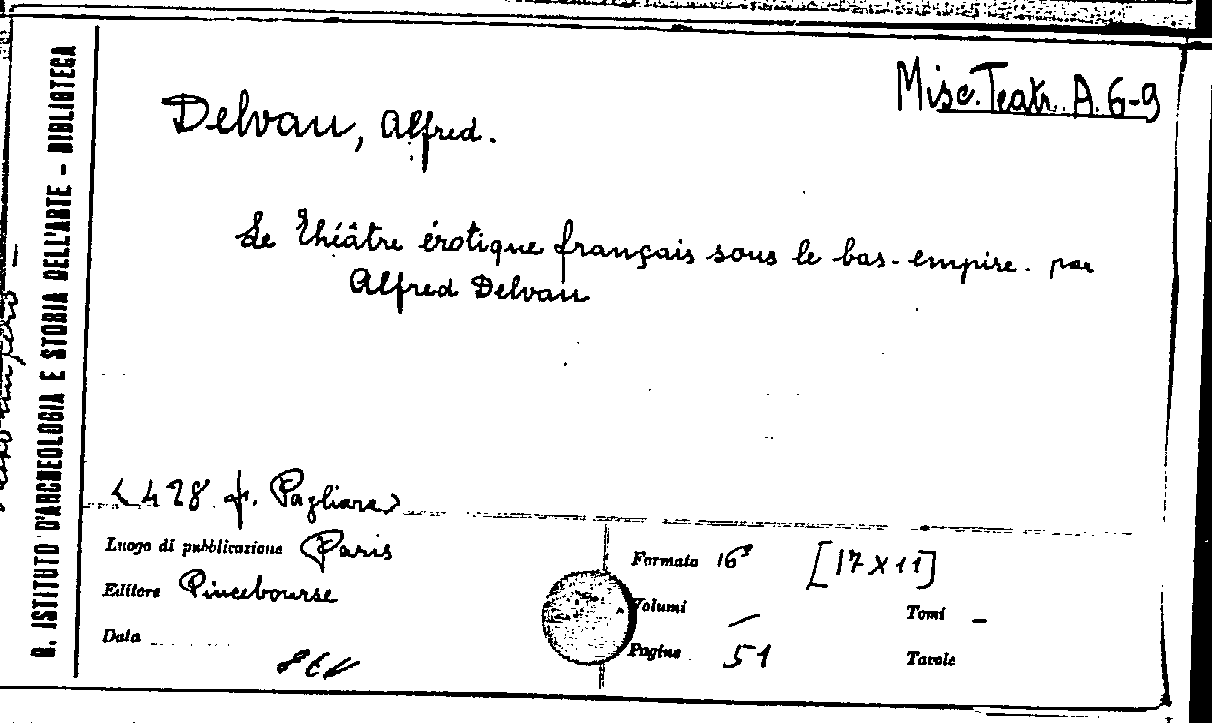 Misc. Teatr. A. 6-9
Delvau, Alfred.
Le Théâtre érotique français sous le bas-empire. par
Alfred Delvau
R. ISTITUTO D'ARCHEOLOGIA E STORIA DELL'ARTE - BIBLIOTECA
<428 f. Pagliara>
Luogo di pubblicazione Paris
Editore Pincebourse
Data
Formato 16º [17 x 11]
Volumi — Tomi —
Pagine 51 Tavole